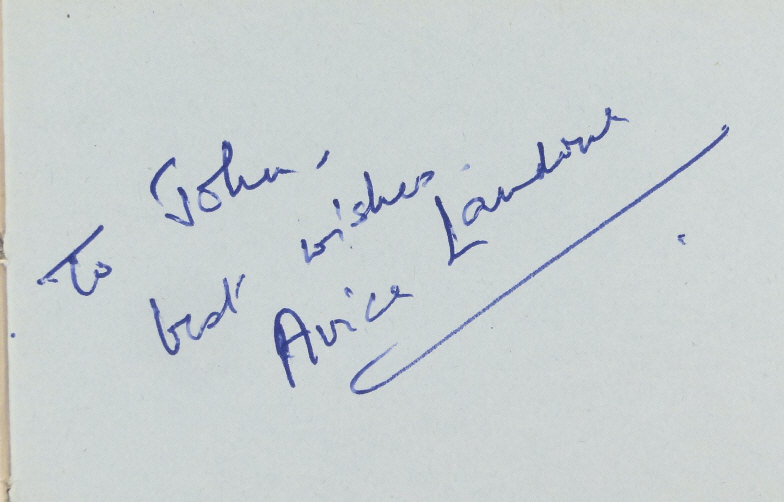 To John,
best wishes
Avice Landone